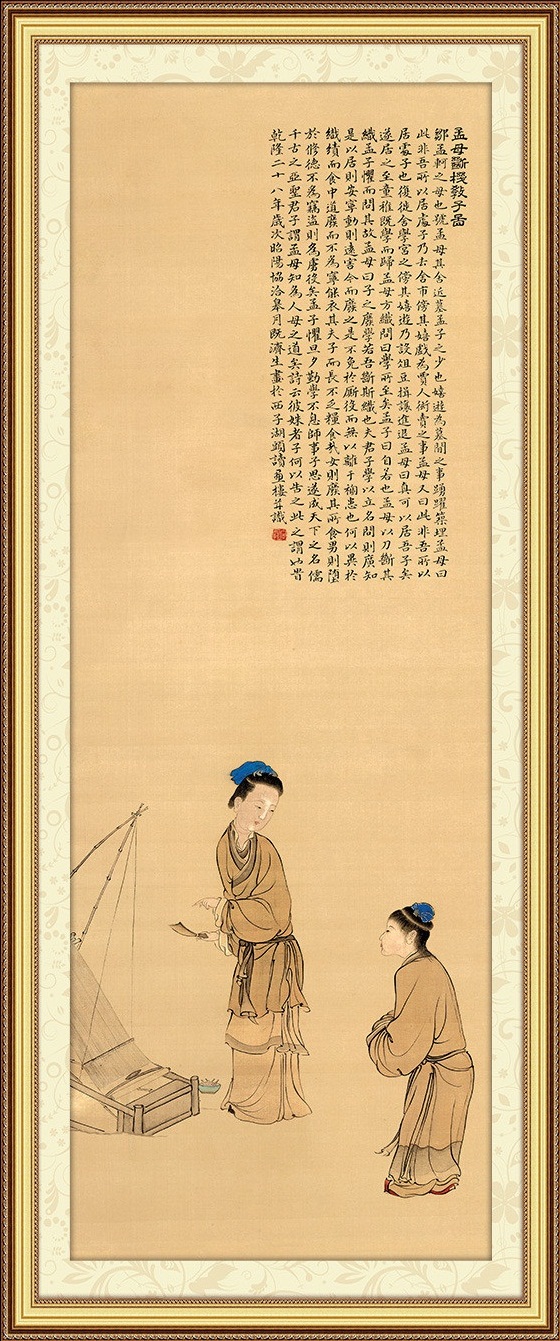 孟母斷機教子啚
鄒孟軻之母也號孟母其舍近墓孟子之少也嬉遊為墓間之事踴躍築埋孟母曰
此非吾所以居處子乃去舍市傍其嬉戲為賈人衒賣之事孟母又曰此非吾所以
居處子也復徙舍學宮之傍其嬉遊乃設俎豆揖讓進退孟母曰真可以居吾子矣
遂居之至童稚既學而歸孟母方織問曰學所至矣孟子曰自若也孟母以刀斷其
織孟子懼而問其故孟母曰子之廢學若吾斷斯織也夫君子學以立名問則廣知
是以居則安寧動則遠害今而廢之是不免於厮役而無以離于禍患也何以異於
織績而食中道廢而不為寧能衣其夫子而長不乏糧食哉女則廢其所食男則墮
於修德不為竊盜則為虜役矣孟子懼旦夕勤學不息師事子思遂成天下之名儒
千古之亞聖君子謂孟母知為人母之道矣詩云彼姝者子何以告之此之謂也昔
乾隆二十八年歲次昭陽協洽皋月既濟生畫於西子湖頭讀畫樓並識